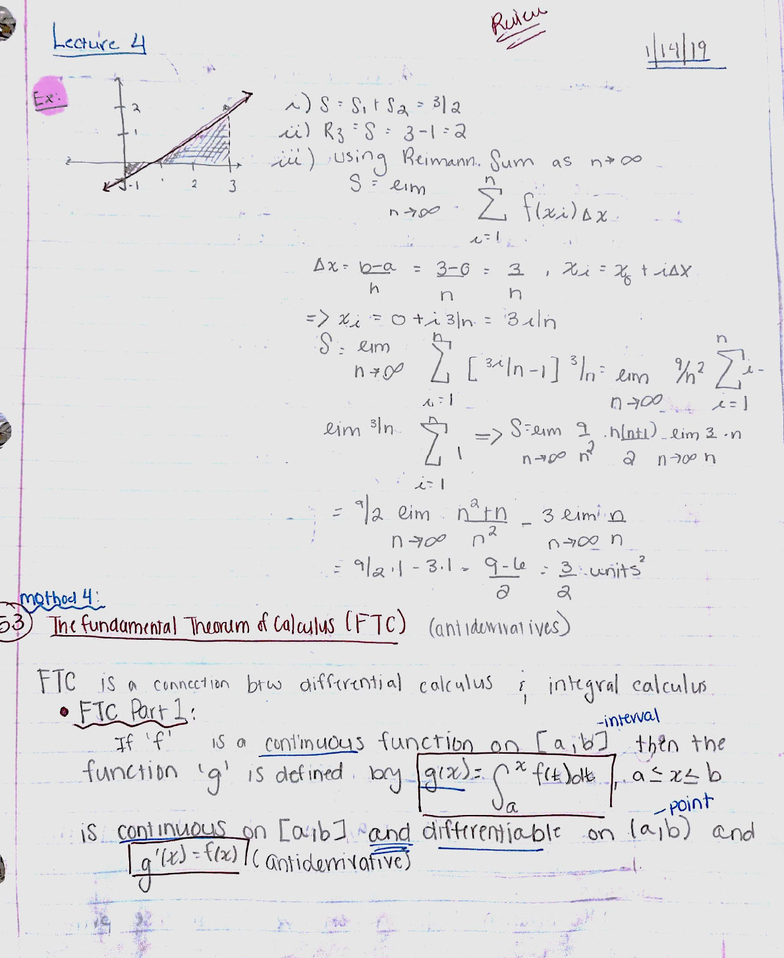 Lecture 4
1/14/19
Ex:
2
1
-1
2
3
i) S = S₁ + S₂ = 3/2
ii) R₃ = S = 3 - 1 = 2
iii) using Reimann. Sum as n→∞
S = lim n→∞ . n Σ i=1 f(xi)Δx
Δx = b-a/n = 3-0/n = 3/n , xi = x₀ + iΔx
=> xi = 0 + i 3/n = 3i/n
S = lim n→∞ n Σ i=1 [3i/n - 1] 3/n = lim n→∞ 9/n² n Σ i=1 i -
lim 3/n n Σ i=1 1 => S = lim n→∞ 9/n² . n(n+1)/2 - lim n→∞ 3/n . n
= 9/2 lim n→∞ n²+n/n² - 3 lim n→∞ n/n
= 9/2 . 1 - 3.1 = 9-6/2 = 3/2 units²
method 4:
53 The fundamental Theorum of Calculus (FTC) (antiderivatives)
FTC is a connection btw differential calculus & integral calculus
• FTC Part 1:
-interval
If 'f' is a continuous function on [a,b] then the
function 'g' is defined by g(x) = ∫ₐˣ f(t)dt, a ≤ x ≤ b
-point
is continuous on [a,b] and differentiable on (a,b) and
g'(x) = f(x) (antiderivative)